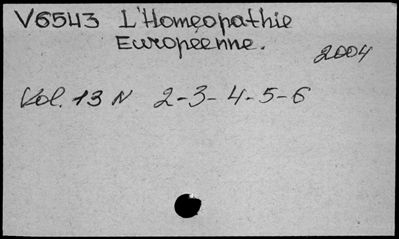 V6543 L'Homeopathie
Européenne.
2004
Vol. 13 N 2-3-4-5-6